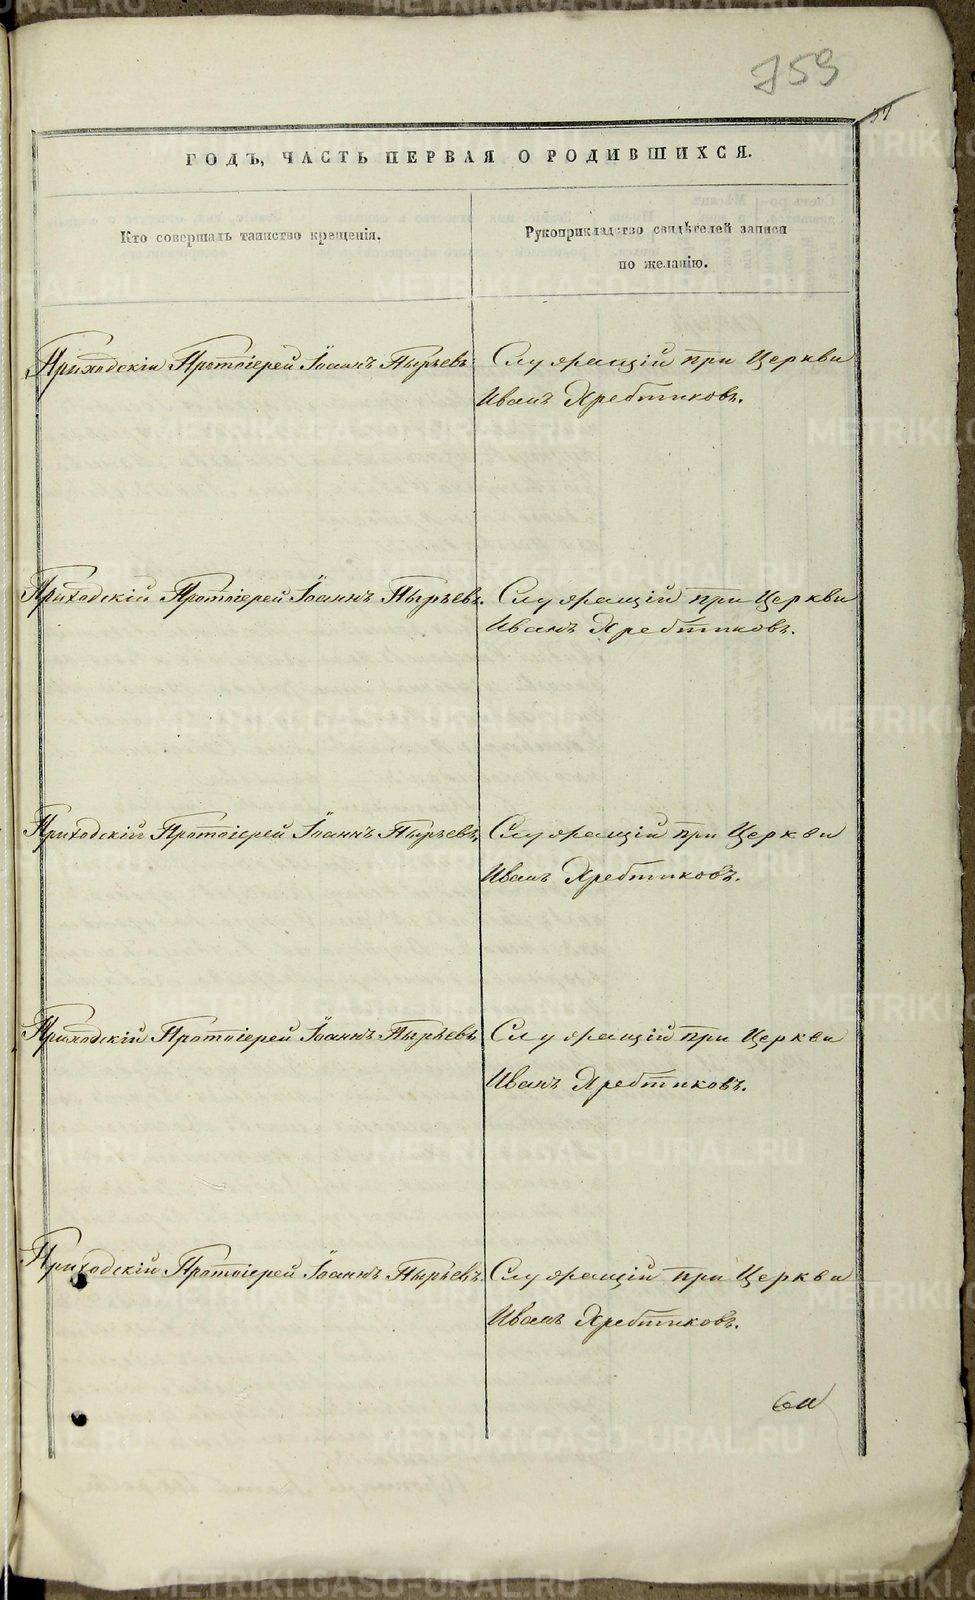 759
37
ГОДЪ, ЧАСТЬ ПЕРВАЯ О РОДИВШИХСЯ.
Кто совершалъ таинство крещенія.
Рукоприкладство свидѣтелей записи
по желанію.
Приходскій Протоіерей Іоаннъ Пырьевъ
Служащій при Церкви
Иванъ Хребтиковъ.
Приходскій Протоіерей Іоаннъ Пырьевъ.
Служащій при Церкви
Иванъ Хребтиковъ.
Приходскій Протоіерей Іоаннъ Пырьевъ,
Служащій при Церкви
Иванъ Хребтиковъ.
Приходскій Протоіерей Іоаннъ Пырьевъ
Служащій при Церкви
Иванъ Хребтиковъ.
Приходскій Протоіерей Іоаннъ Пырьевъ.
Служащій при Церкви
Иванъ Хребтиковъ.
METRIKI.GASO-URAL.RU